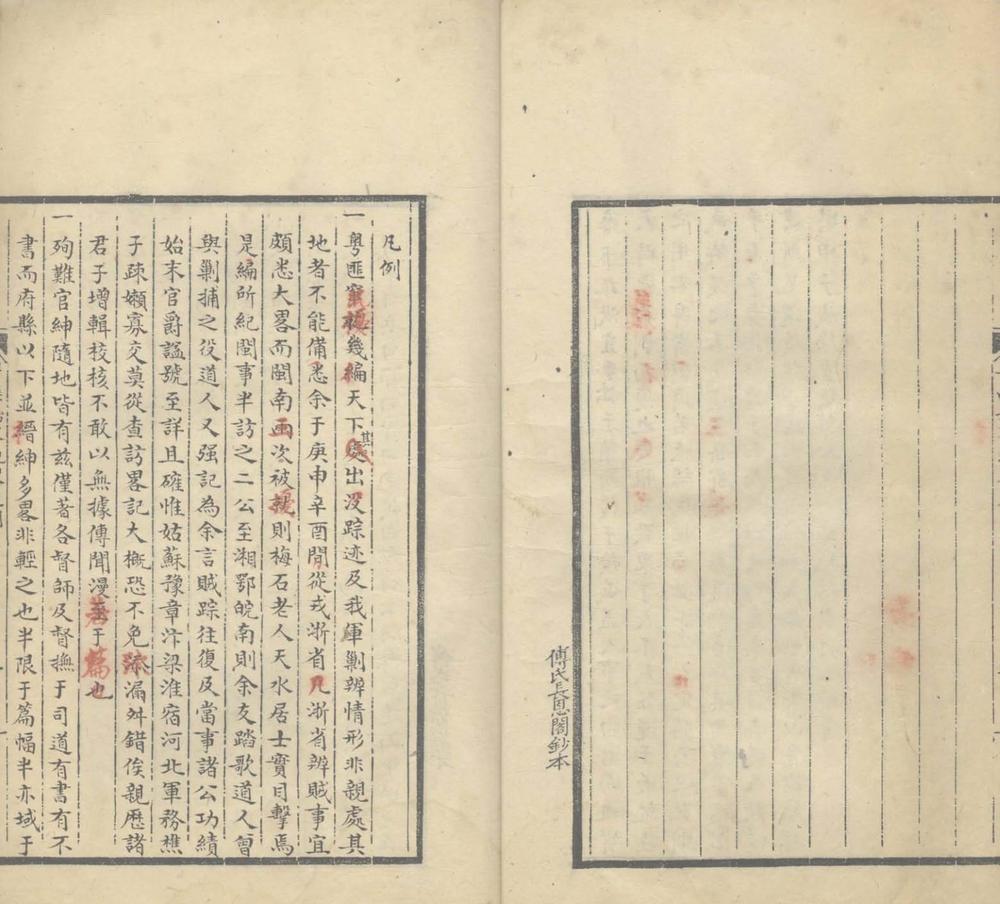 傅氏長恩閣鈔本
凡例
一粵匪竄擾幾編天下其出没踪迹及我軍剿辦情形非親處其
地者不能備悉余于庚申辛酉間從戎浙省凡浙省辦賊事宜
頗悉大畧而閩南両次被擾則梅石老人天水居士實目擊焉
是編所紀閩事半訪之二公至湘鄂皖南則余友踏歌道人曾
與剿捕之役道人又强記為余言賊踪往復及當事諸公功績
始末官爵謚號至詳且確惟姑蘇豫章汴梁淮宿河北軍務樵
子疎嬾寡交莫從查訪畧記大概恐不免疎漏舛錯俟親歷諸
君子增輯校核不敢以無據傳聞漫著于篇也
一殉難官紳隨地皆有兹僅著各督師及督撫于司道有書有不
書而府縣以下並縉紳多畧非輕之也半限于篇幅半亦域于